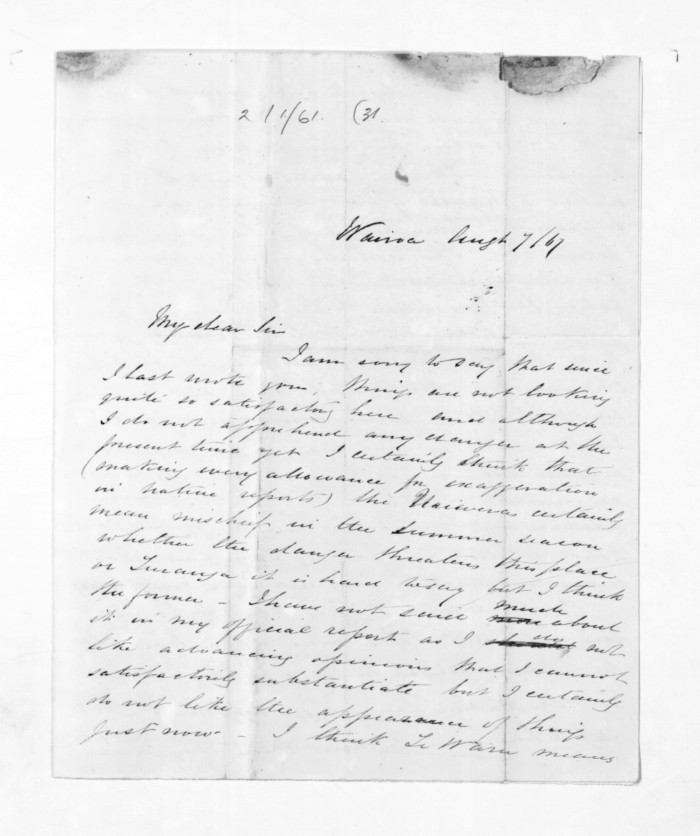 2/1/61. (31.
Wairoa Augst 7/67
My dear Sir
I am sorry to say that since
I last wrote you, things are not looking
quite so satisfactory here and although
I do not apprehend any danger at the
present time yet I certainly think that
(making every allowance for exaggeration
in native reports) the Uriweras certainly
mean mischief in the Summer season
whether the danger threatens this place
or Turanga it is hard to say but I think
the former - I have not said much about
it in my official report as I do not
like advancing opinions that I cannot
satisfactorily substantiate but I certainly
do not like the appearance of things
just now - I think Te Waru means